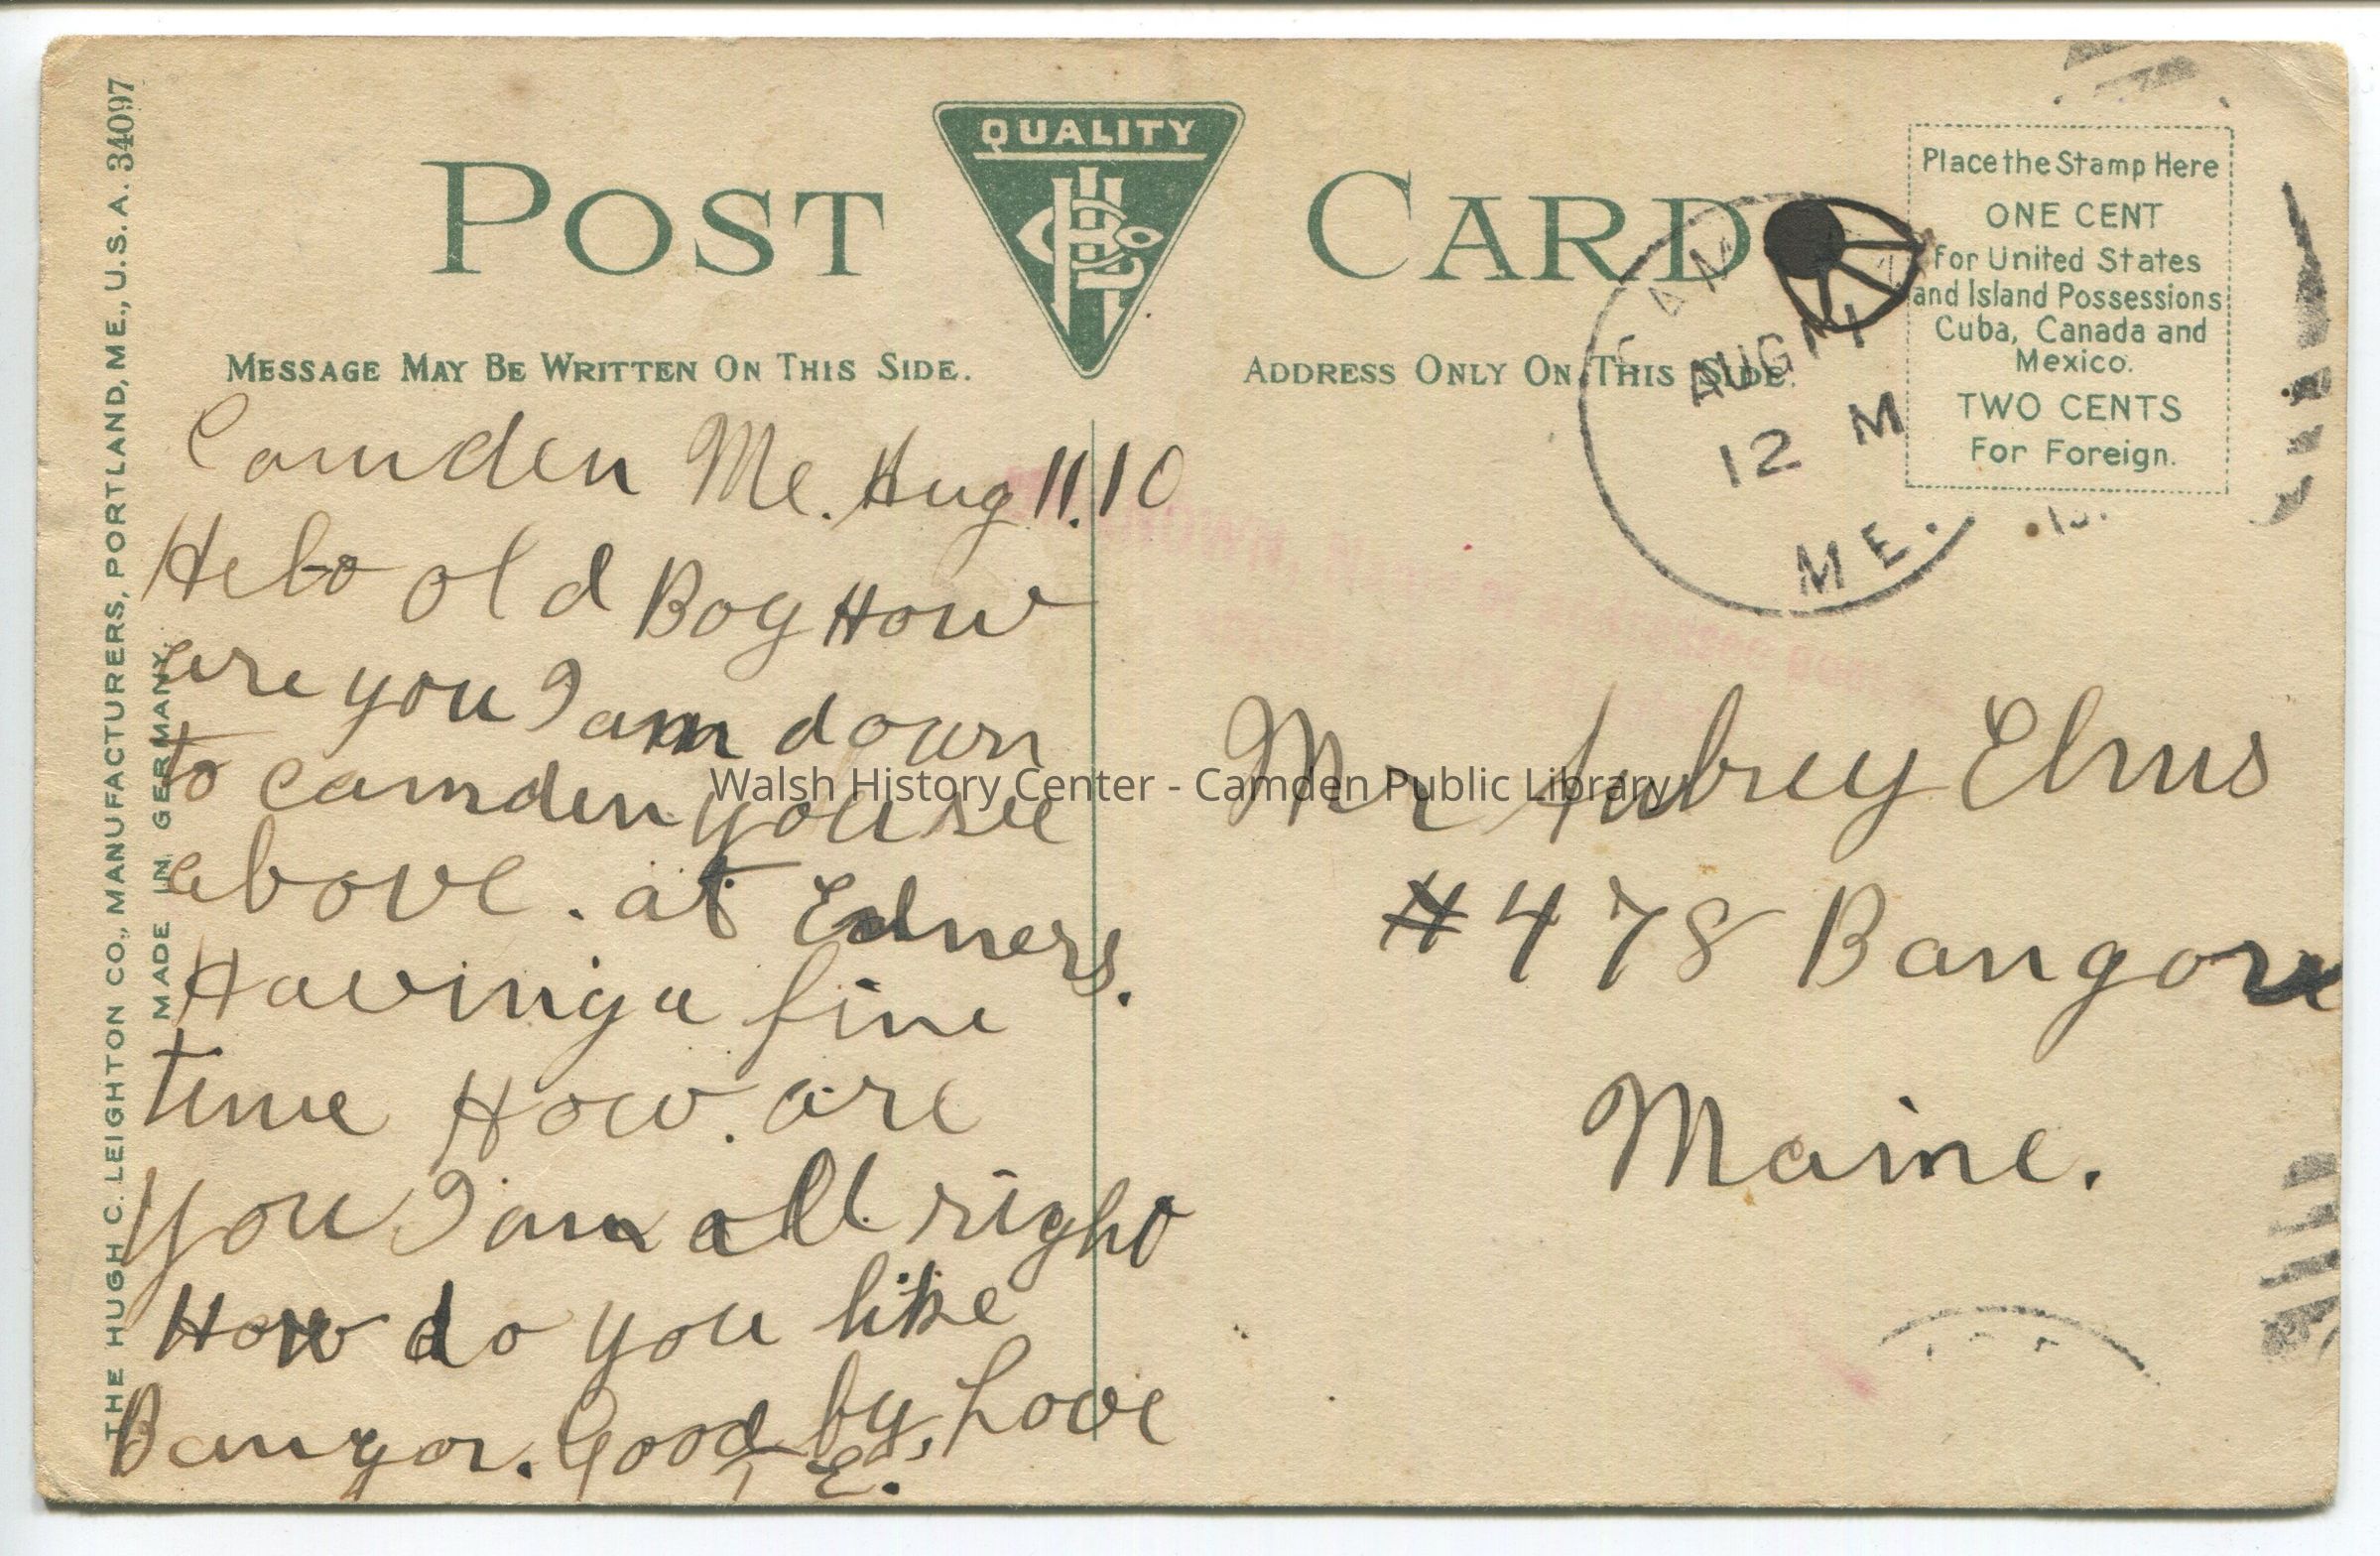 THE HUGH C. LEIGHTON CO., MANUFACTURERS, PORTLAND, ME., U.S.A. 34097
MADE IN GERMANY.
POST CARD
QUALITY
MESSAGE MAY BE WRITTEN ON THIS SIDE.
ADDRESS ONLY ON THIS SIDE.
Place the Stamp Here
ONE CENT
For United States
and Island Possessions
Cuba, Canada and
Mexico.
TWO CENTS
For Foreign.
AUG 11
12 M
ME.
Camden Me. Aug 11. 10
Hello old Boy How
are you I am down
to camden you see
above. at Edners.
Having a fine
time How. are
you I am all right
How do you like
Bangor. Good by, Love
E.
Mr Aubrey Elms
# 478 Bangor
Maine.
Walsh History Center - Camden Public Library